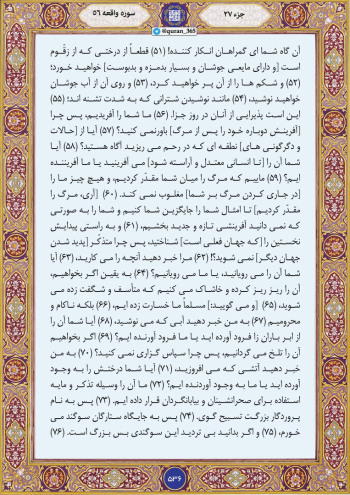 جزء ۲۷
سوره واقعه ۵۶
@quran_365
آن گاه شما ای گمراهان انکار کننده! (۵۱) قطعاً از درختی که از زقّوم
است [و دارای مایعی جوشان و بسیار بدمزه و بدبوست] خواهید خورد؛
(۵۲) و شکم ها را از آن پر خواهید کرد، (۵۳) و روی آن از آب جوشان
خواهید نوشید، (۵۴) مانند نوشیدن شترانی که به شدت تشنه اند؛ (۵۵)
این است پذیرایی از آنان در روز جزا. (۵۶) ما شما را آفریدیم، پس چرا
[آفرینش دوباره خود را پس از مرگ] باورنمی کنید؟ (۵۷) آیا از [حالات
و دگرگونی های] نطفه ای که در رحم می ریزید آگاه هستید؟ (۵۸) آیا
شما آن را [تا انسانی معتدل و آراسته شود] می آفرینید یا ما آفریننده
ایم؟ (۵۹) ماییم که مرگ را میان شما مقدّر کردیم، و هیچ چیز ما را
[در جاری کردن مرگ بر شما] مغلوب نمی کند. (۶۰) [آری، مرگ را
مقدّر کردیم] تا امثال شما را جایگزین شما کنیم و شما را به صورتی
که نمی دانید آفرینشی تازه و جدید بخشیم، (۶۱) و به راستی پیدایش
نخستین را [که جهان فعلی است] شناختید، پس چرا متذکّر [پدید شدن
جهان دیگر] نمی شوید؟! (۶۲) مرا خبر دهید آنچه را می کارید، (۶۳) آیا
شما آن را می رویانید، یا ما می رویانیم؟ (۶۴) به یقین اگر بخواهیم،
آن را ریز ریز کرده و خاشاک می کنیم که متأسف و شگفت زده می
شوید، (۶۵) [و می گویید:] مسلماً ما خسارت زده ایم، (۶۶) بلکه ناکام و
محرومیم (۶۷) به من خبر دهید آبی که می نوشید، (۶۸) آیا شما آن را
از ابر باران زا فرود آورده اید یا ما فرود آورنده ایم؟ (۶۹) اگر بخواهیم
آن را تلخ می گردانیم، پس چرا سپاس گزاری نمی کنید؟ (۷۰) به من
خبر دهید آتشی که می افروزید، (۷۱) آیا شما درختش را به وجود
آورده اید یا ما به وجود آورنده ایم؟ (۷۲) ما آن را وسیله تذکر و مایه
استفاده برای صحرانشینان و بیابانگردان قرار داده ایم. (۷۳) پس به نام
پروردگار بزرگت تسبیح گوی. (۷۴) پس به جایگاه ستارگان سوگند می
خورم، (۷۵) و اگر بدانید بی تردید این سوگندی بس بزرگ است. (۷۶)
۵۳۶